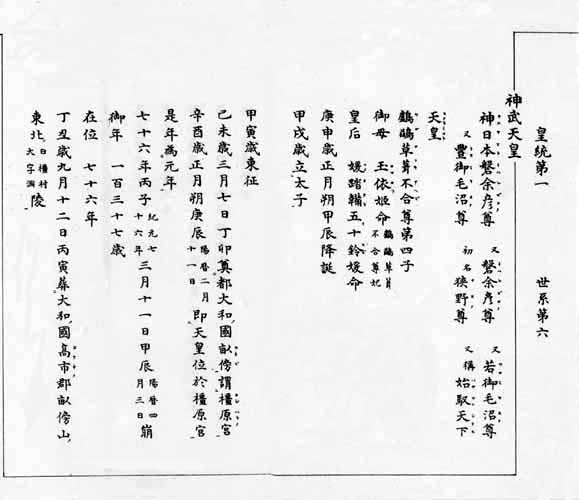 皇統第一 世系第六
神武天皇
神日本磐余彦尊 又 磐余彦尊 又 若御毛沼尊
又 豐御毛沼尊 初名 狹野尊 又稱 始馭天下
天皇
鸕鶿草葺不合尊第四子
御母 玉依姬命 鸕鶿草葺不合尊妃
皇后 媛踏韛五十鈴媛命
庚申歲正月朔甲辰降誕
甲戌歲立太子
甲寅歲東征
己未歲三月七日丁卯奠都大和國畝傍謂橿原宮
辛酉歲正月朔庚辰 陽曆二月十一日 即天皇位於橿原宮
是年為元年
七十六年丙子 紀元七 三月十一日甲辰 陽曆四月三日 崩
御年 一百三十七歲
在位 七十六年
丁丑歲九月十二日丙寅葬大和國高市郡畝傍山
東北 白橿村大字洞 陵